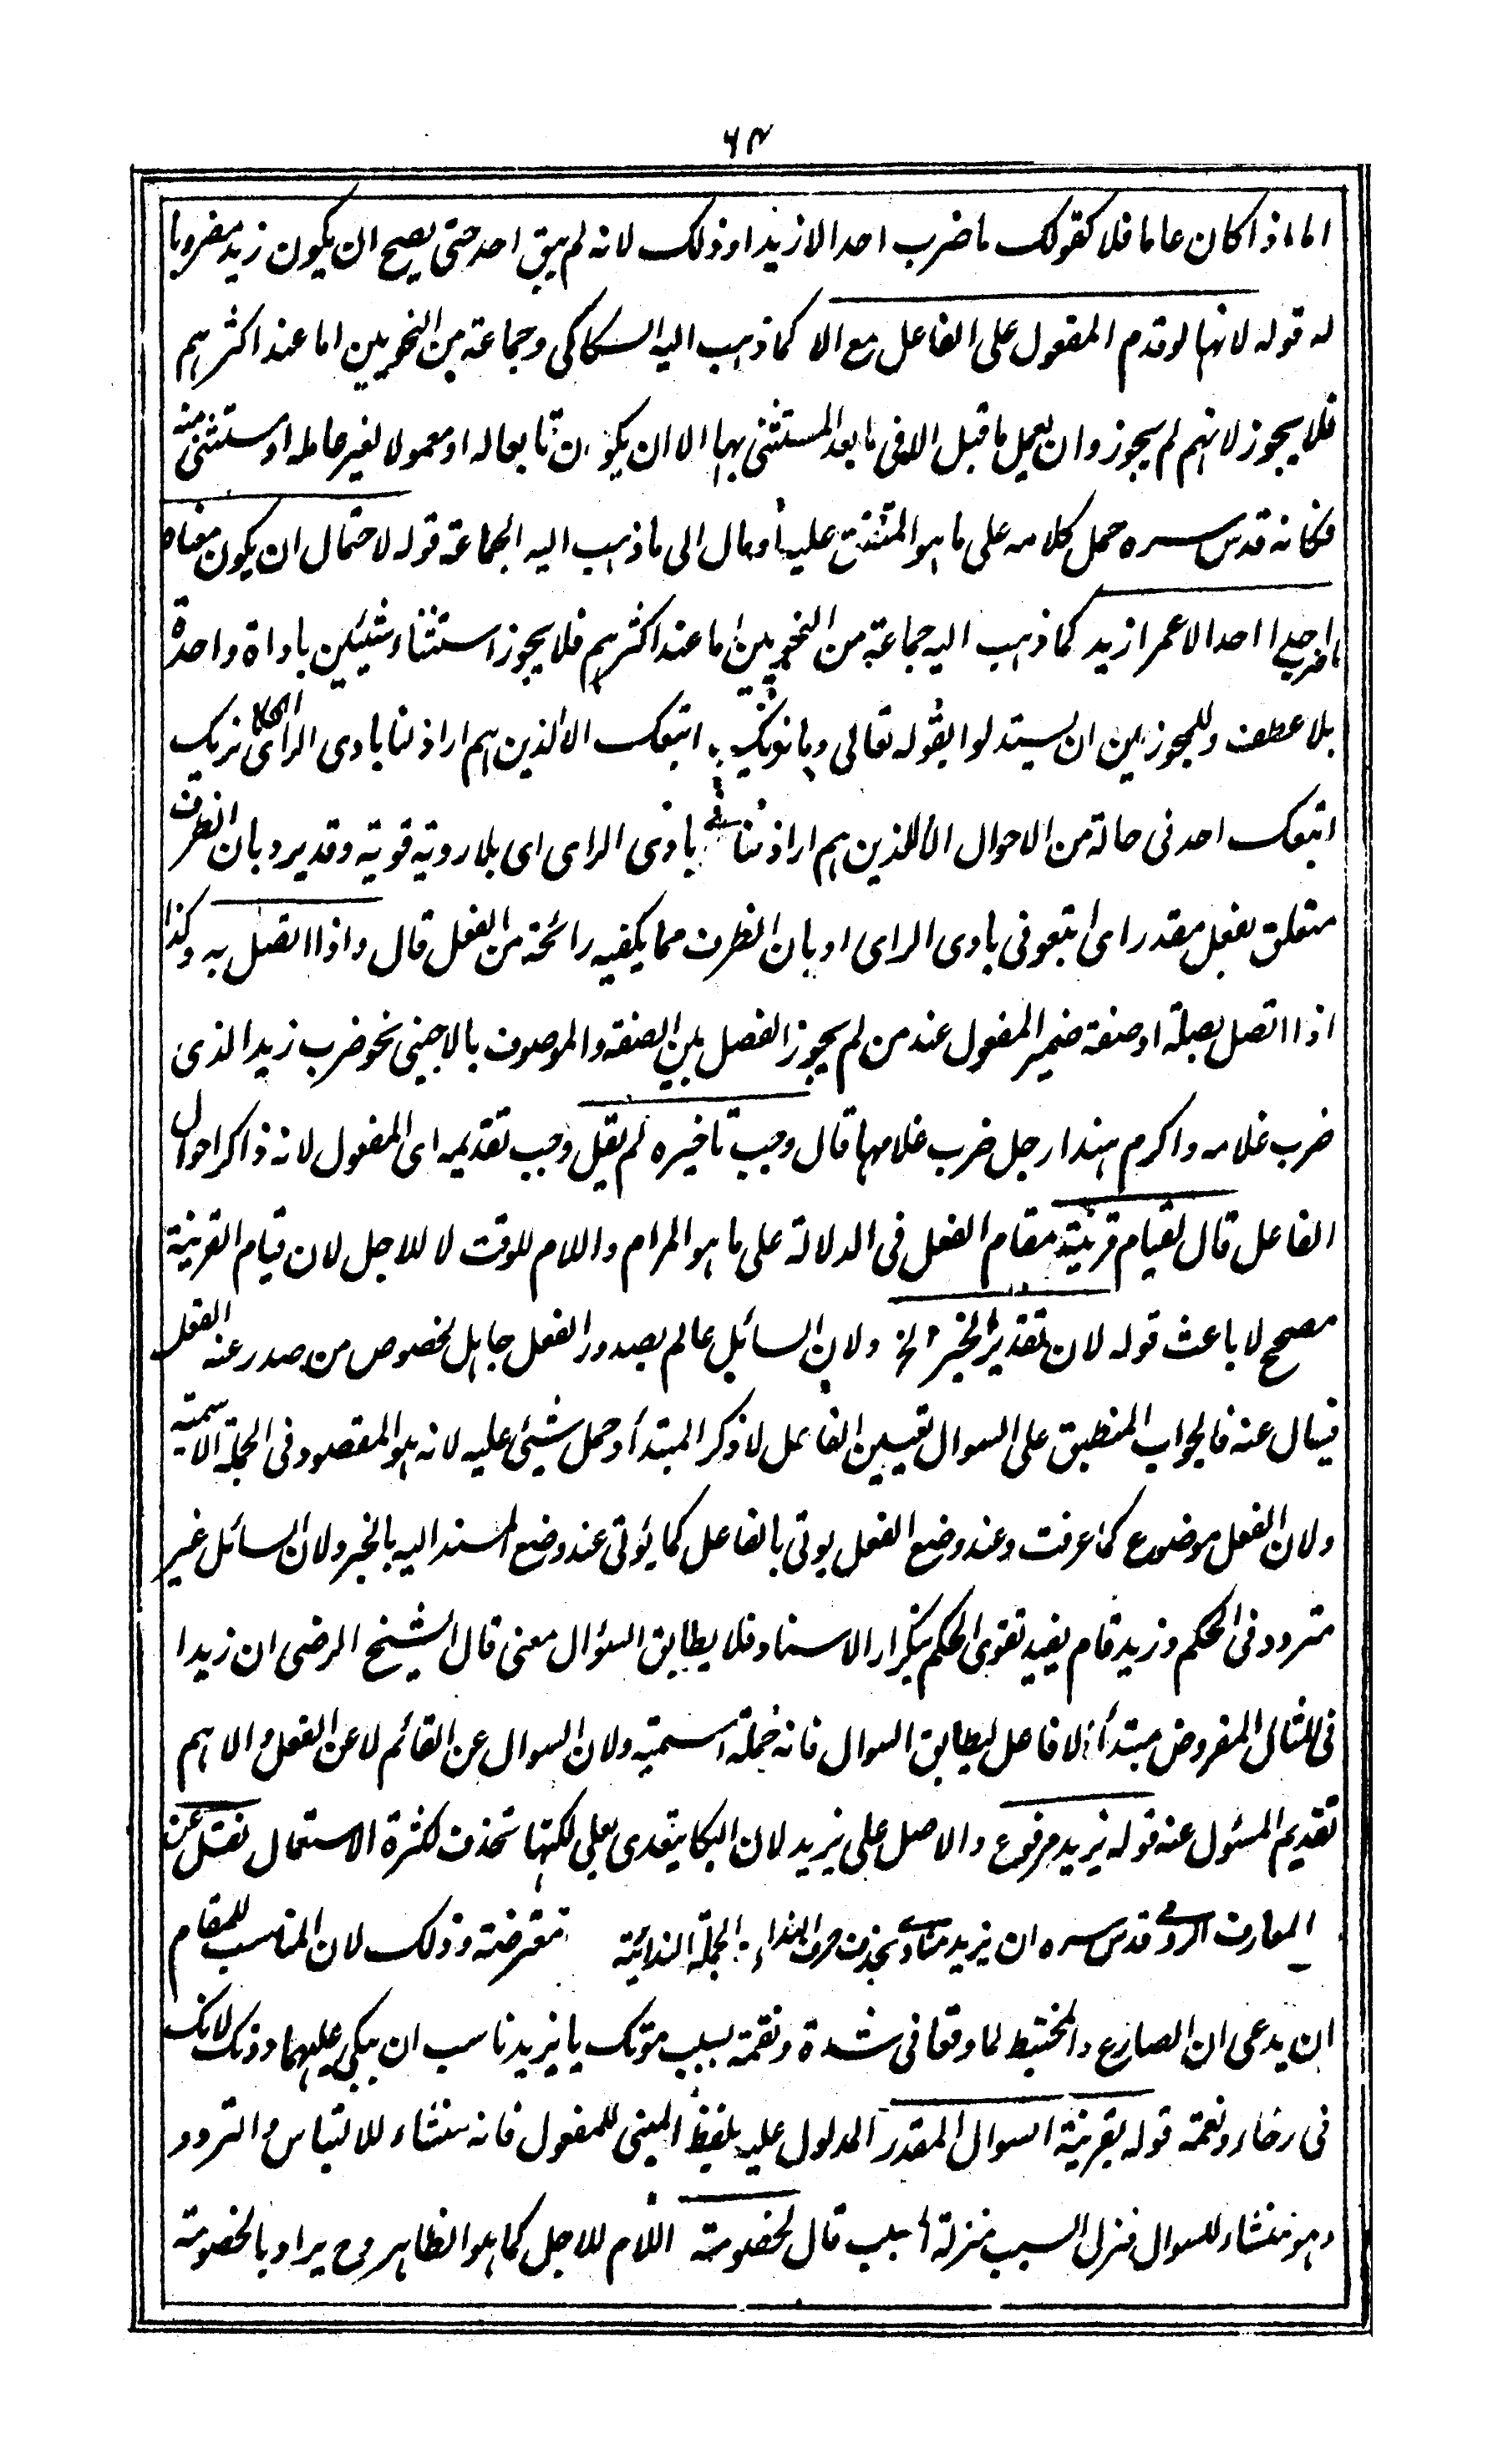 ۶۴
اما اذا كان عاما فلا كقولك ما ضرب احد الا زيدا وذلك لانه لم يبق احد حتى يصح ان يكون زيد مضروبا
له قوله لانها لو قدم المفعول على الفاعل مع الا كما ذهب اليه السكاكى وجماعة من النحويين اما عند اكثرهم
فلا يجوز لانهم لم يجوزوا ان يعمل ما قبل الا فى ما بعد المستثنى بها الا ان يكون تابعا له او معمولا لغير عامله او مستثنى منه
فكانه قدس سره حمل كلامه على ما هو المتفق عليه او مال الى ما ذهب اليه الجماعة قوله لاحتمال ان يكون معناه
ما ضرب احدا احد الا عمرا زيد كما ذهب اليه جماعة من النحويين اما عند اكثرهم فلا يجوز استثناء شيئين باداة واحدة
بلا عطف وللمجوزين ان يستدلوا بقوله تعالى وما نرىك اتبعك الا الذين هم اراذلنا بادى الراى اى ما نريك
اتبعك احد فى حالة من الاحوال الا الذين هم اراذلنا فى بادى الراى اى بلا روية قوية وقد يرد بان الظرف
متعلق بفعل مقدر اى اتبعوا فى بادى الراى او بان الظرف مما يكفيه رائحة من الفعل قال واذا اتصل به وكذا
اذا اتصل بصلة او صفة ضمير المفعول عند من لم يجوز الفصل بين الصفة والموصوف بالاجنبى نحو ضرب زيدا الذى
ضرب غلامه واكرم هندا رجل ضرب غلامها قال وجب تاخيره لم يقل وجب تقديمه اى المفعول لانه ذاكر احوال
الفاعل قال لقيام قرينة مقام الفعل فى الدلالة على ما هو المرام واللام للوقت لا للاجل لان قيام القرينة
مصحح لا باعث قوله لان تقدير الخبر الخ ولان السائل عالم بصدور الفعل جاهل بخصوص من صدر عنه الفعل
فيسال عنه فالجواب المنطبق على السوال تعيين الفاعل لا ذكر المبتدأ وحمل شيئ عليه لانه هو المقصود فى الجملة الاسمية
ولان الفعل موضوع كما عرفت وعند وضع الفعل يوتى بالفاعل كما يؤتى عند وضع المسند اليه بالخبر ولان السائل غير
متردد فى الحكم وزيد قام يفيد تقوى الحكم بتكرار الاسناد فلا يطابق السؤال معنى قال الشيخ الرضى ان زيدا
فى المثال المفروض مبتدأ لا فاعل ليطابق السوال فانه جملة اسمية ولان السوال عن القائم لا عن الفعل والاهم
تقديم المسئول عنه قوله يزيد مرفوع والاصل على يزيد لان البكا يتعدى بعلى لكنها تحذف لكثرة الاستعمال نقل عن
المعارف الرومى قدس سره ان يزيد منادى بحذف حرف النداء والجملة الندائية معترضة وذلك لان المناسب للمقام
ان يدعى ان الضارع والمختبط لما وقعا فى شدة ونقمة بسبب موتك يا يزيد ناسب ان يبكى عليهما دونك لانك
فى رخاء ونعمة قوله بقرينة السوال المقدر المدلول عليه بلفظ المبنى للمفعول فانه منشاء للالتباس والتردد
وهو منشاء للسوال فنزل السبب منزلة المسبب قال لخصومة اللام للاجل كما هو الظاهر وح يراد بالخصومة